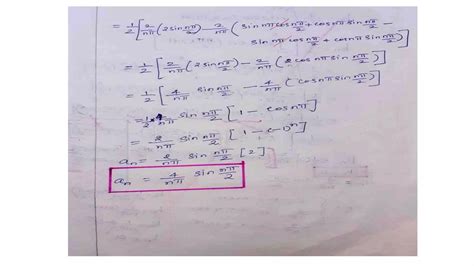 = 1/2 [ 2/nπ (2 sin nπ/2) - 2/nπ ( sin nπ cos nπ/2 + cos nπ sin nπ/2 -
sin nπ cos nπ/2 + cos nπ sin nπ/2 ) ]
= 1/2 [ 2/nπ (2 sin nπ/2) - 2/nπ ( 2 cos nπ sin nπ/2 ) ]
= 1/2 [ 4/nπ sin nπ/2 - 4/nπ ( cos nπ sin nπ/2 ) ]
= 1/2 × 4/nπ sin nπ/2 [ 1 - cos nπ ]
= 2/nπ sin nπ/2 [ 1 - (-1)ⁿ ]
aₙ = 2/nπ sin nπ/2 [ 2 ]
aₙ = 4/nπ sin nπ/2